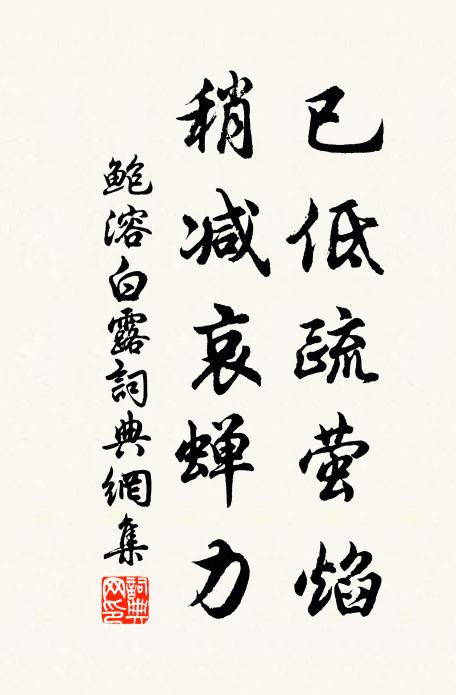 已低疏萤焰
稍减哀蝉力
鲍溶白露詞典網集
詞典網印